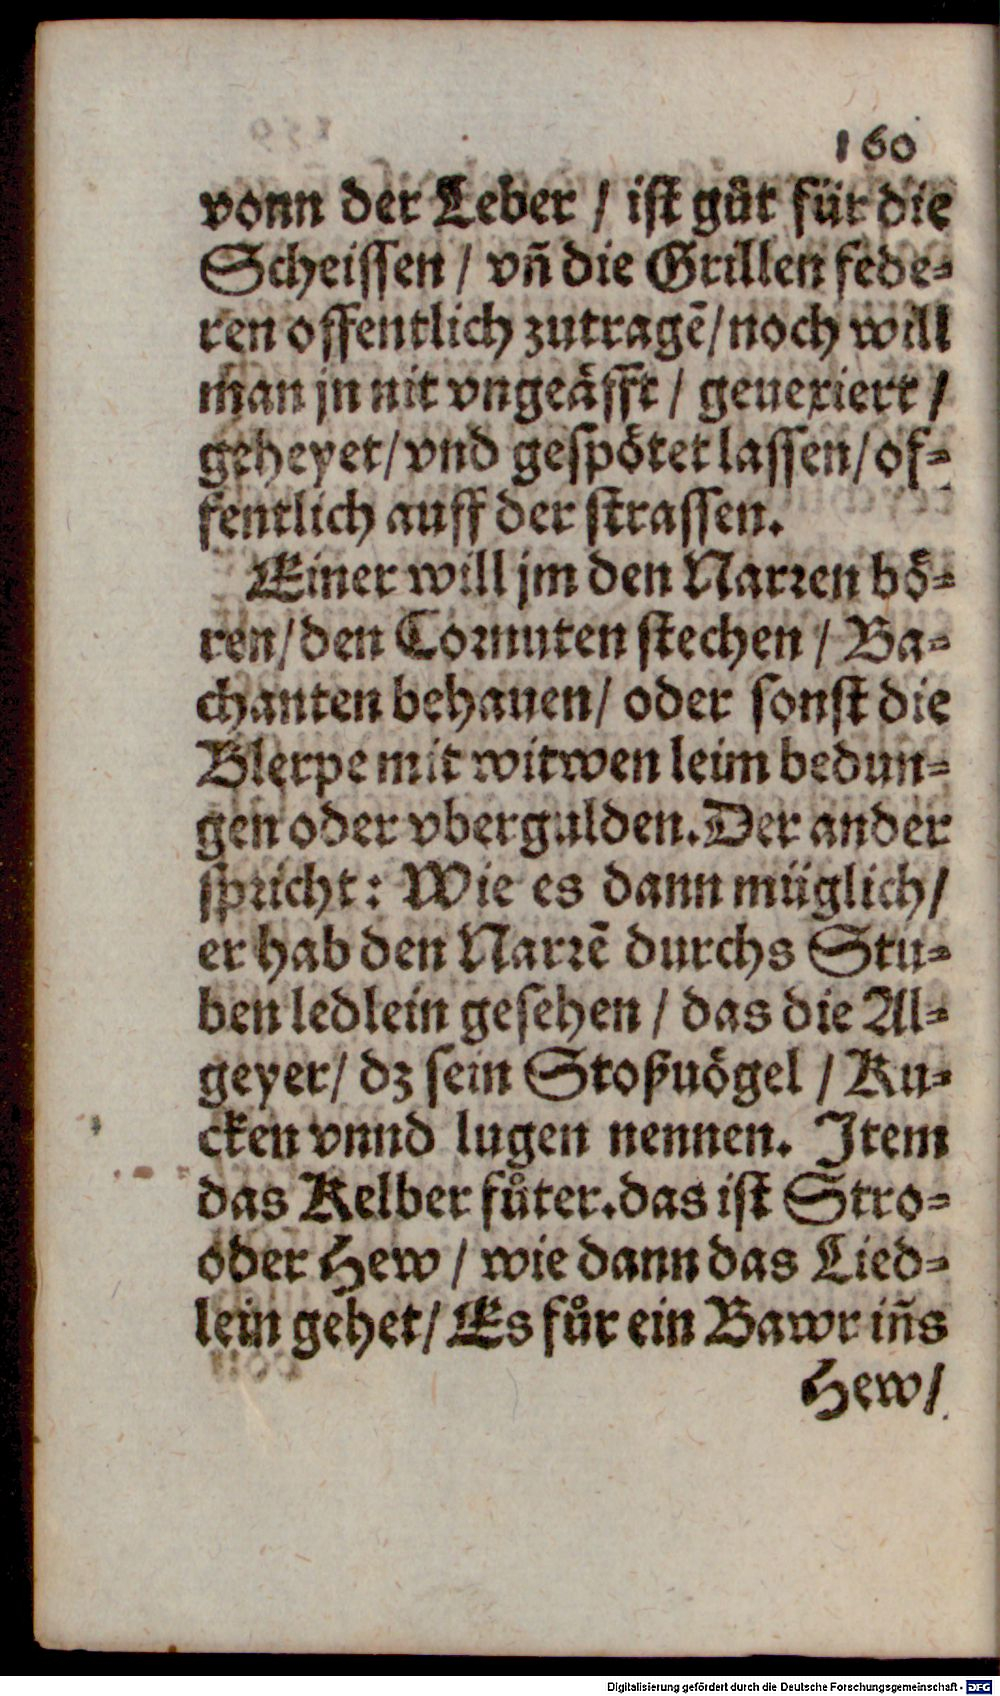 160
vonn der Leber / ist gůt für die
Scheissen / vñ die Grillen fede⸗
ren offentlich zutragẽ/noch will
man jn nit vngeäfft / geuexiert /
geheyet/vnd gespötet lassen/of⸗
fentlich auff der strassen.
Einer will jm den Narren bö⸗
ren/den Cornuten stechen / Ba⸗
chanten behauen/ oder sonst die
Blerpe mit witwen leim bedun⸗
gen oder vbergulden. Der ander
spricht: Wie es dann müglich/
er hab den Narrẽ durchs Stu⸗
ben ledlein gesehen / das die Al⸗
geyer/ dz sein Stoßuögel / Ku⸗
cken vnnd lugen nennen. Item
das Kelber fůter.das ist Stro⸗
oder Hew / wie dann das Lied⸗
lein gehet/ Es fůr ein Bawr iñs
Hew/
Digitalisierung gefördert durch die Deutsche Forschungsgemeinschaft - DFG